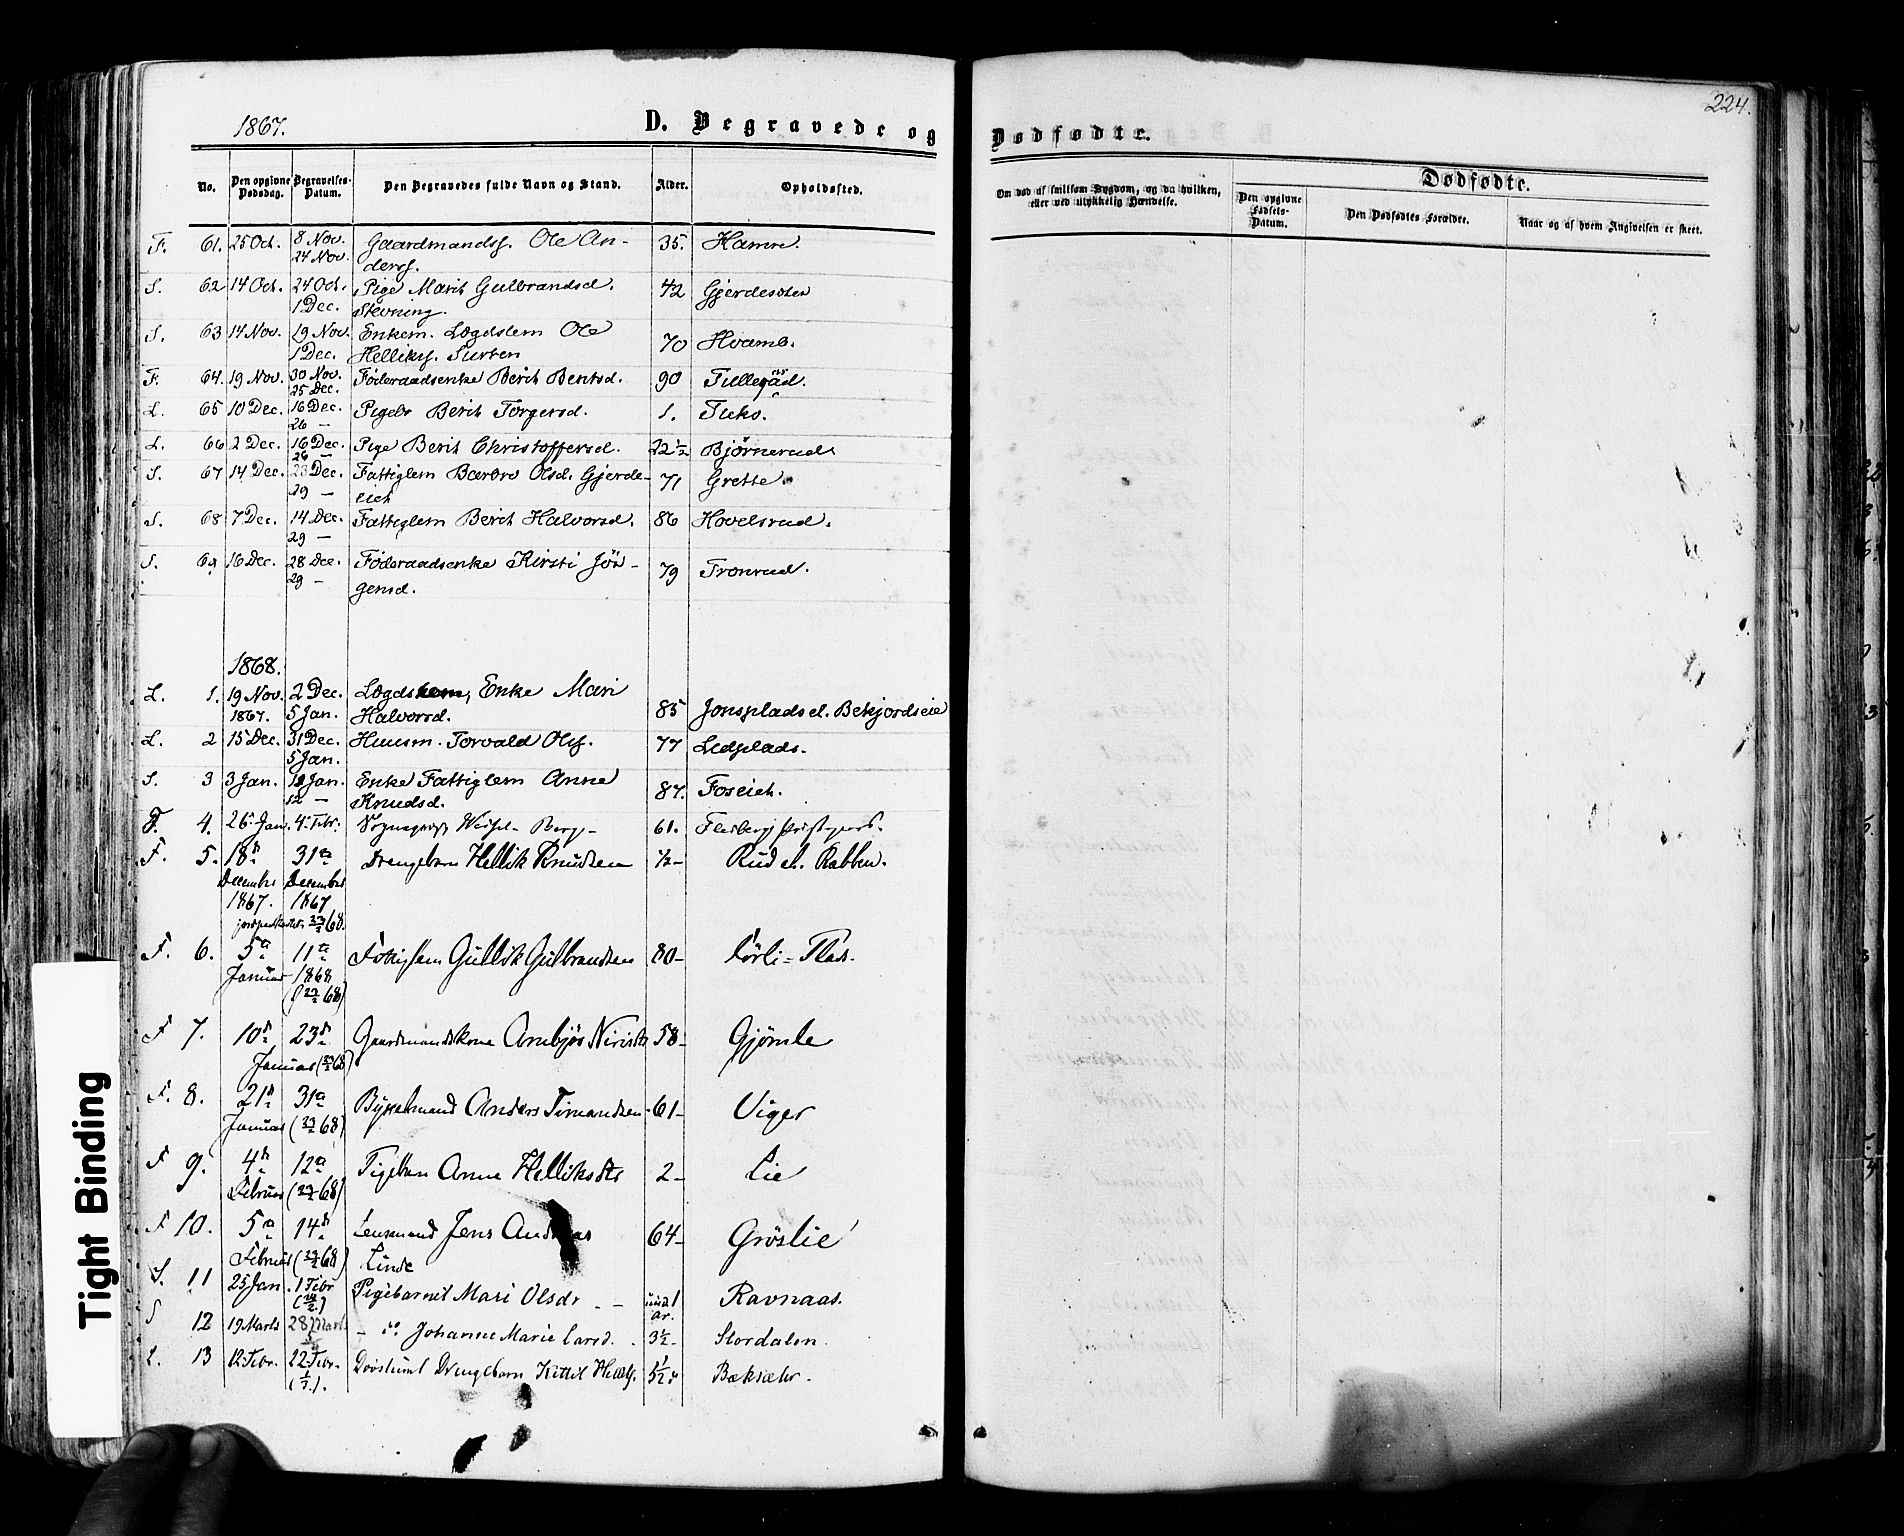 224.
1867.
D. Begravede og
Dødfødte.
No.
Den opgivne Dødsdag.
Begravelses-Datum.
Den Begravedes fulde Navn og Stand.
Alder.
Opholdssted.
Om død af smitsom Sygdom, og da hvilken, eller ved ulykkelig Hændelse.
Dødfødte.
Den opgivne Fødsels-Datum.
Den Dødfødtes Forældre.
Naar og af hvem Angivelsen er skeet.
F. 61. 25 Oct. 8 Nov. Gaardmandsf. Ole An- 35. Hamre.
24 Nov. dersf.
S. 62 14 Oct. 24 Oct. Pige Marit Gulbrandsd. 42 Gjerdesøten
1 Dec. Stevning.
S. 63 14 Nov. 19 Nov. Enkem. Lægdslem Ole 70 Hvamb.
1 Dec. Helliksf. Surten
F. 64. 19 Nov. 30 Nov. Føderaadsenke Berit Bentsd. 90
25 Dec.
L. 65 10 Dec. 16 Dec. Pigebr Berit Torgersd. 1. Fteko.
26 —
L. 66 2 Dec. 16 Dec. Pige Berit Christoffersd. 22½ Bjørnerud.
26 —
S. 67 14 Dec. 23 Dec. Fattiglem Barbro Olsd. Gjerde- 71 Grette.
29 — eiet
S. 68 7 Dec. 14 Dec. Fattiglem Berit Halvorsd. 86 Hovelsrud.
29 —
S. 69 16 Dec. 28 Dec. Føderaadsenke Kirsti Jör- 79 Tronrud.
29 — gensd.
1868.
L. 1. 19 Nov. 2 Dec. Lægdslem, Enke Mari
1867. 5 Jan. Halvorsd. 85 Jonsplads el. Bekjordseie
L. 2 15 Dec. 31 Dec. Huusm. Torvald Olsf. 77 Ledsplads.
5 Jan.
S. 3 3 Jan. 12 Jan. Enke Fattiglem Anne 87. Foseiet.
12 — Knudsd.
F. 4. 26 Jan. 4 Febr. Sognepræst Berg- 61. Flesberg Præstegaard.
F. 5. 18de 31te Drengebarn Hellik Knudsen ½- Rud el. Rabben.
December December
1867. 1867
23/2 68.
F. 6. 5te 11te Fattiglem Gullik Gulbrandsen 80- Lörli-Plads.
Januar 1868
(23/2 68)
F 7. 10de 23de Gaardmandskone Ambjör Nirisdtr 58- Gjömle
Januar (23/2 68)
F. 8. 21de 31te Bÿgselmand Anders Timandsen- 61- Viger
Januar (23/2 68)
F 9. 4de 12te Pigebarn Anne Helliksdtr 2- Lie
Februar (23/2 68)
F 10. 5te 14de Lensmand Jens Andreas 64- Gröslie
Februar (23/2 68) Linde
S. 11 25 Jan. 1 Febr Pigebarnet Mari Olsdr - 1 Ravnaas.
ar.
S 12 19 Marts 28 Marts - do Johanne Marie Larsd. 3½- Stordalen.
L. 13 12 Febr. 22 Febr. Døvstumt Drengebarn Kittil Hellf. 5½ Bæksæter.
(1/3).
Tight Binding